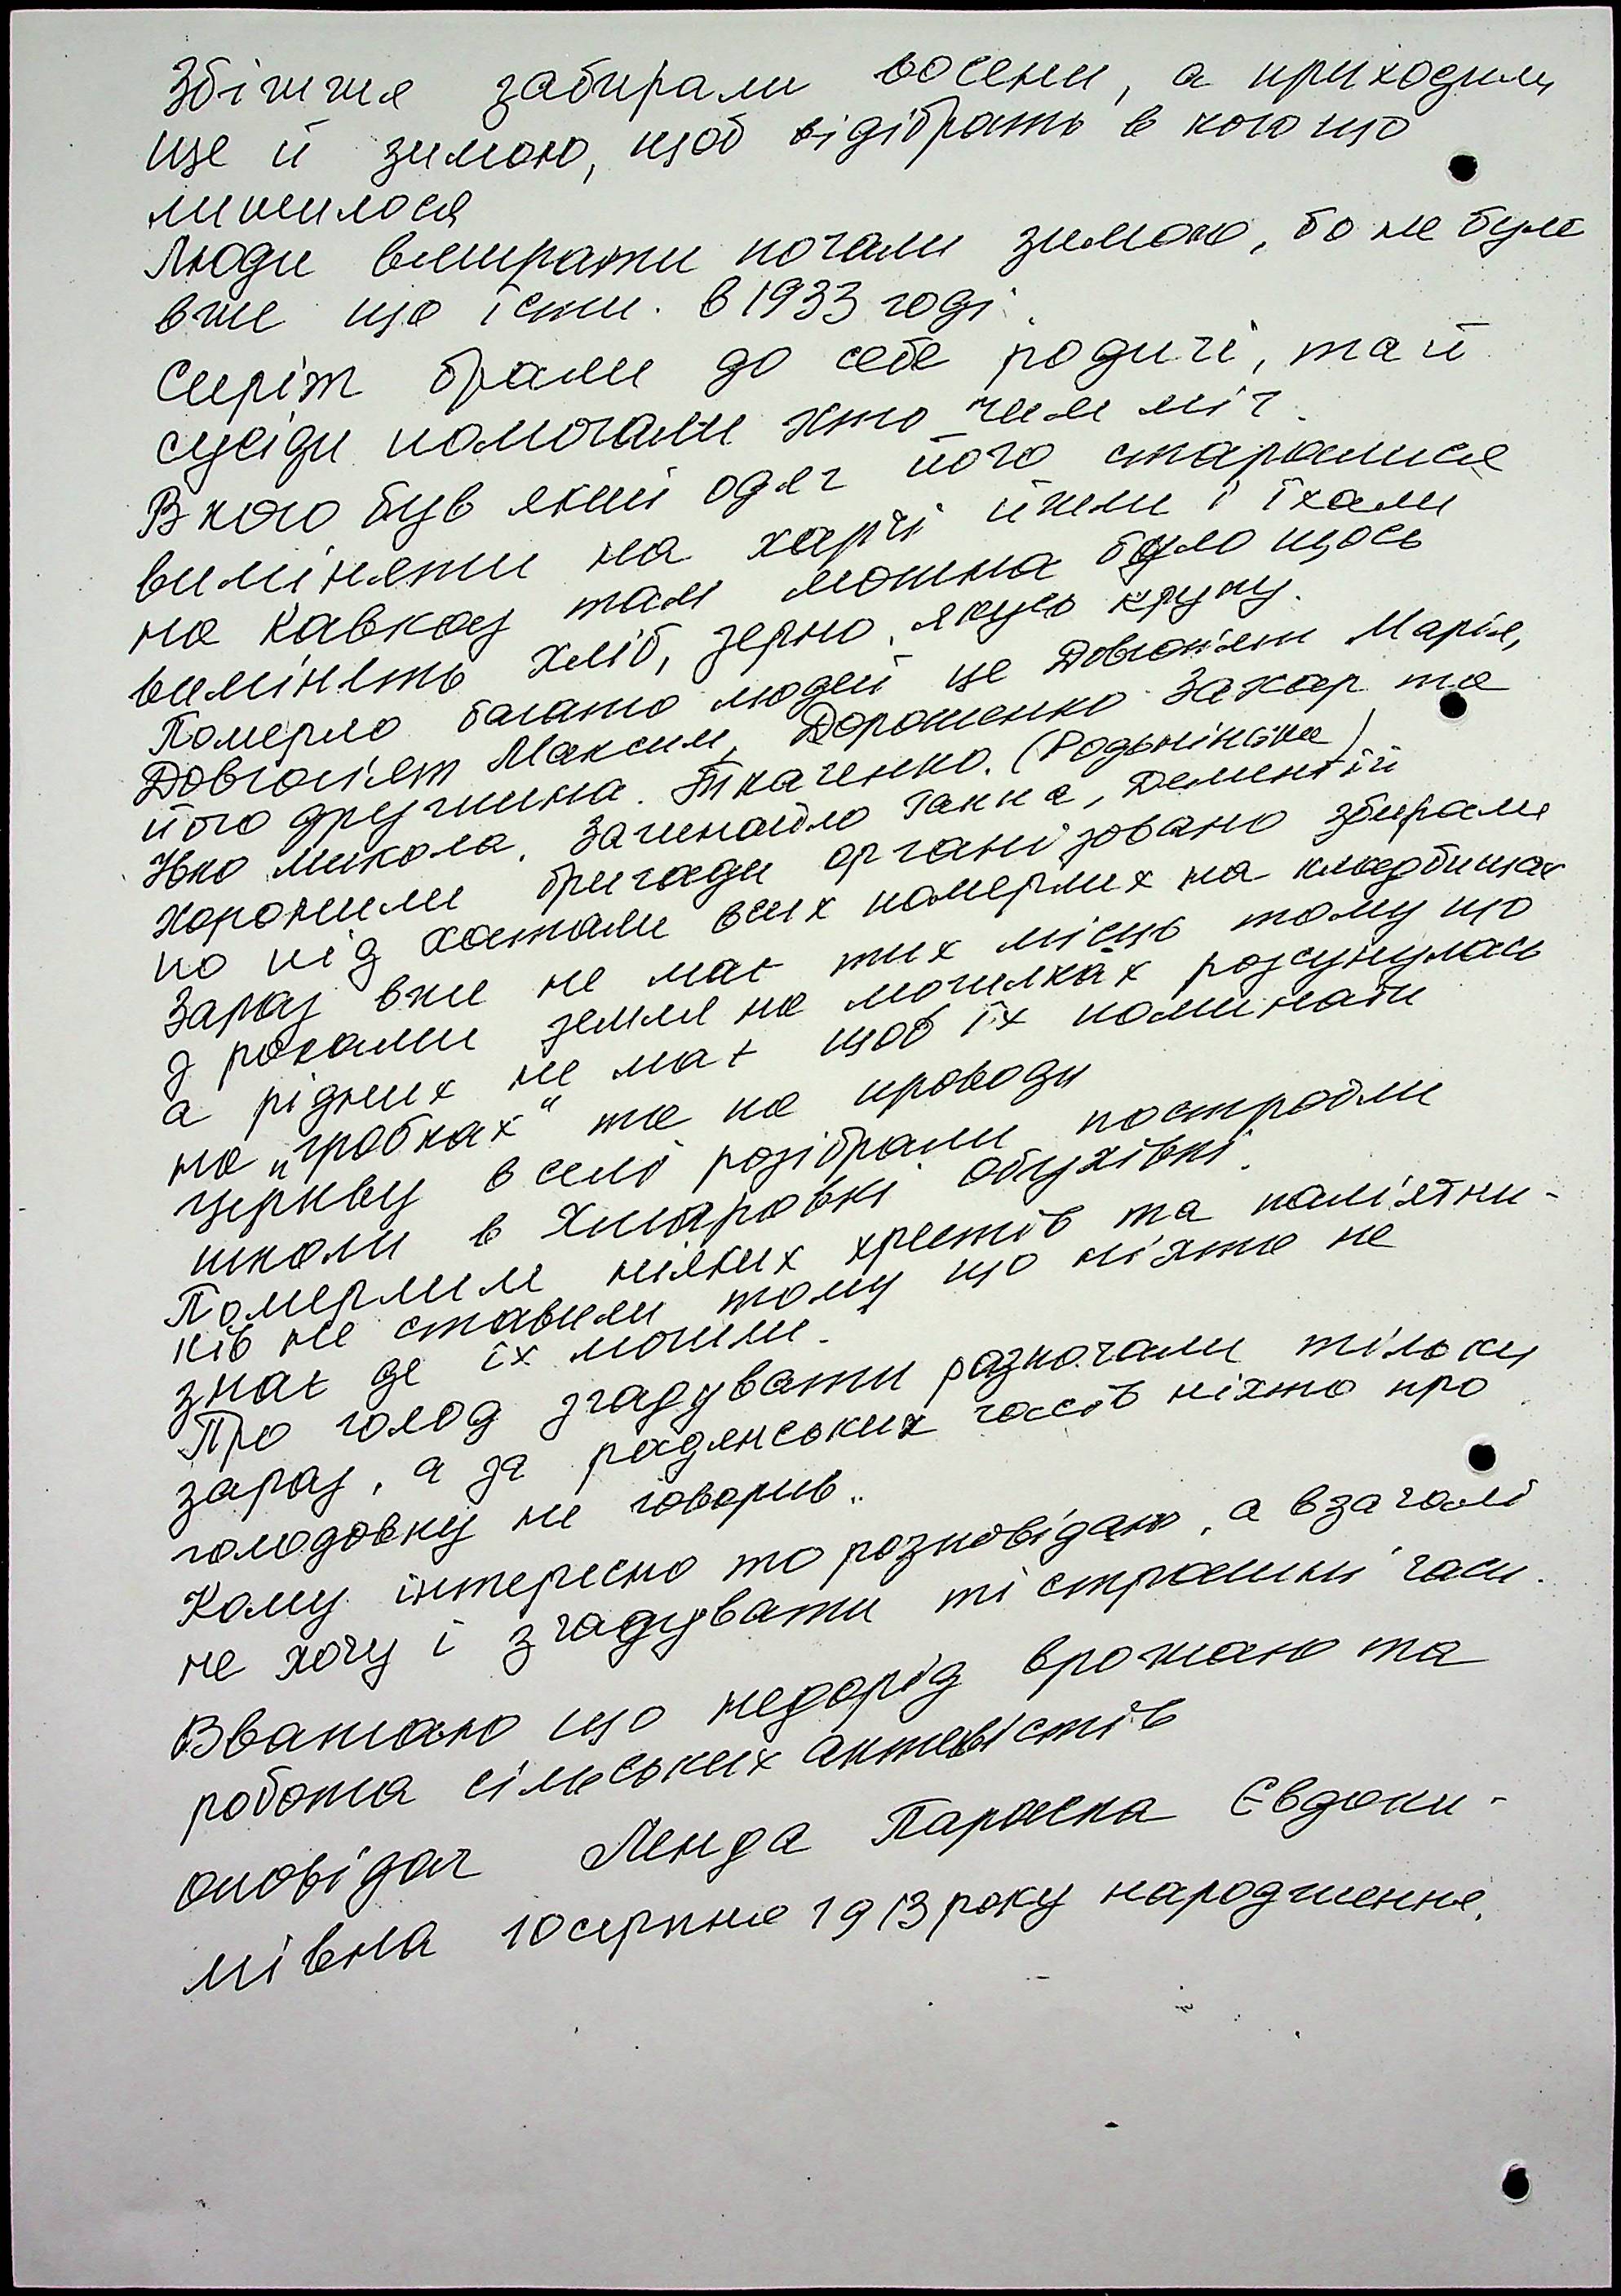 Збіжжя забирали восени, а приходили
ще й зимою, щоб відібрать в кого що
лишилося
Люди вмирати почали зимою, бо не було
вже що їсти. в 1933 годі.
Сиріт брали до себе родичі, та й
сусіди помогали хто чим міг.
В кого був який одяг його старалися
виміняти на харчі йшли і їхали
на Кавказ там можна було щось
вимінять хліб, зерно, якусь крупу.
Померло багато людей це Довгопят Марія,
Довгопят Максим, Дорошенко Захар та
його дружина. Ткаченко. (Родьчінська)
Ювко Микола. Зачинайло Ганна, Дементій
Хоронили бригади организовано збирали
по під хатами всих померлих на кладбищах
Зараз вже не має тих місць тому що
з роками земля на могилках розсунулась
а рідних не має щоб їх поминати
на „гробках" та на проводи
Церкву в селі розібрали построїли
школи в Хмаровкі Обухівкі.
Померлим ніяких хрестів та памʼятни-
ків не ставили тому що ніхто не
знає де їх могили.
Про голод згадувати разпочали тільки
зараз, а за радянських часів ніхто про
голодовку не говорив..
Кому інтересно то розповідаю, а взагалі
не хочу і згадувати ті страшні часи.
Вважаю що недорід врожаю та
робота сільських активістів
оповідач Ленда Параска Євдоки-
мівна 10 серпня 1913 року народження.